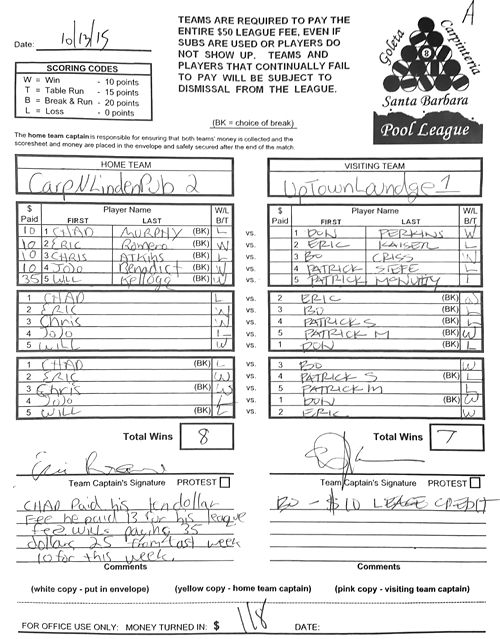 A
Date: 10/13/15
TEAMS ARE REQUIRED TO PAY THE
ENTIRE $50 LEAGUE FEE, EVEN IF
SUBS ARE USED OR PLAYERS DO
NOT SHOW UP. TEAMS AND
PLAYERS THAT CONTINUALLY FAIL
TO PAY WILL BE SUBJECT TO
DISMISSAL FROM THE LEAGUE.
SCORING CODES
W = Win - 10 points
T = Table Run - 15 points
B = Break & Run - 20 points
L = Loss - 0 points
(BK = choice of break)
Goleta Carpinteria
8
Santa Barbara
Pool League
The home team captain is responsible for ensuring that both teams' money is collected and the
scoresheet and money are placed in the envelope and safely secured after the end of the match.
HOME TEAM
CarpNLindenPub 2
$ Paid Player Name FIRST LAST W/L B/T
10 1 CHAD MURPHY (BK) L vs.
10 2 ERIC Romero (BK) W vs.
10 3 CHRIS Atkins (BK) L vs.
10 4 JoJo Benedict (BK) W vs.
35 5 Will Kellogg (BK) W vs.
1 CHAD L vs.
2 ERIC W vs.
3 Chris W vs.
4 JoJo L vs.
5 WILL W vs.
1 CHAD (BK) L vs.
2 ERIC W vs.
3 Chris (BK) W vs.
4 JoJo vs.
5 WILL (BK) L vs.
Total Wins 8
Team Captain's Signature PROTEST
CHAD Paid his ten dollar
Fee he paid 13 for his league
fee Will's paying 35
dollars 25 from last week
10 for this week.
Comments
VISITING TEAM
UpTownLoundge 1
Player Name FIRST LAST W/L B/T
1 DON PERKINS W
2 ERIC KAISER L
3 BO CRISS W
4 PATRICK STEFE L
5 PATRICK McNULTY L
2 ERIC (BK) W
3 BO (BK) L
4 PATRICK S (BK) L
5 PATRICK M (BK) W
1 DON (BK) L
3 BO W
4 PATRICK S (BK) L
5 PATRICK M L
1 DON (BK) W
2 ERIC W
Total Wins 7
Team Captain's Signature PROTEST
BO - $10 LEAGE CREDIT
Comments
(white copy - put in envelope) (yellow copy - home team captain) (pink copy - visiting team captain)
FOR OFFICE USE ONLY: MONEY TURNED IN: $ 118 DATE: